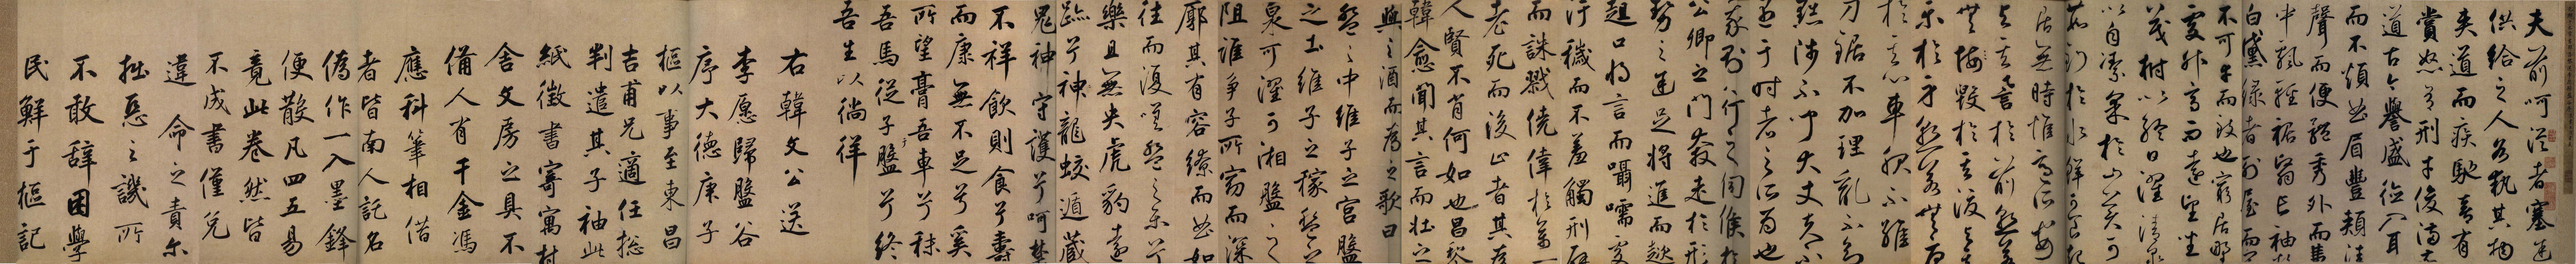 夫前呵從者塞途
供給之人各執其物
夾道而疾馳喜有
賞怒有刑才俊滿前
道古今譽盛德入耳
而不煩曲眉豐頰清
聲而便體秀外而惠
中飄輕裾翳長袖粉
白黛綠者列屋而閑
不可幸而致也窮居野
處升高而遠望坐
茂樹以終日濯清泉
以自潔采於山美可
茹釣於水鮮可食起
居無時惟適所安
與其譽於前孰若
無悔毀於其後與其
樂於身孰若無憂
於其心車服不維
刀鋸不加理亂不知
黜陟不聞大丈夫不
遇于時者之所為也
我則行之伺候於
公卿之門奔走於形
勢之途足將進而趑
趄口將言而囁嚅處
汙穢而不羞觸刑辟
而誅戮僥倖於萬一
老死而後止者其為
人賢不肖何如也昌黎
韓愈聞其言而壯之
與之酒而為之歌曰
盤之中維子之宮盤
之土維子之稼盤之
泉可濯可湘盤之
阻誰爭子所窈而深
廓其有容繚而曲如
往而復嗟盤之樂兮
樂且無央虎豹遠
跡兮神龍蛟遁藏
鬼神守護兮呵禁
不祥飲則食兮壽
而康無不足兮奚
所望膏吾車兮秣
吾馬從子于盤兮終
吾生以徜徉
右韓文公送
李愿歸盤谷
序大德庚子
樞以事至東昌
吉甫兄適任總
判遣其子袖此
紙徵書寄寓村
舍文房之具不
備人有千金馮
應科筆相借
者皆南人託名
偽作一入墨鋒
便散凡四五易
竟此卷然皆
不成書僅免
違命之責尔
拙惡之譏所
不敢辭困學
民鮮于樞記